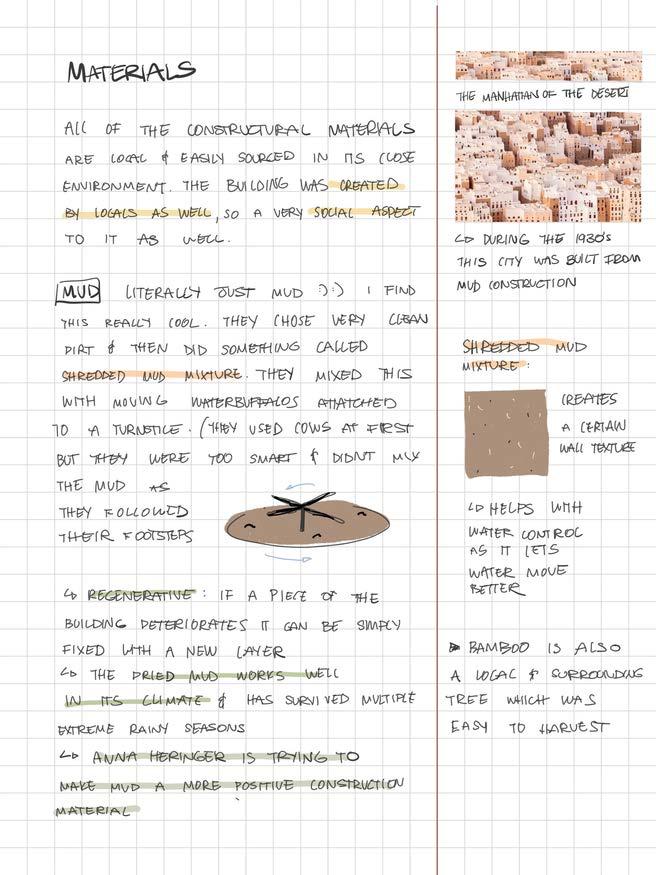 MATERIALS
ALL OF THE CONSTRUCTURAL MATERIALS
ARE LOCAL & EASILY SOURCED IN ITS CLOSE
ENVIRONMENT. THE BUILDING WAS CREATED
BY LOCALS AS WELL, SO A VERY SOCIAL ASPECT
TO IT AS WELL.
MUD LITERALLY JUST MUD :) :) I FIND
THIS REALLY COOL. THEY CHOSE VERY CLEAN
DIRT & THEN DID SOMETHING CALLED
SHREDDED MUD MIXTURE. THEY MIXED THIS
WITH MOVING WATERBUFFALOS ATTATCHED
TO A TURNSTILE. (THEY USED COWS AT FIRST
BUT THEY WERE TOO SMART & DIDNT MIX
THE MUD AS
THEY FOLLOWED
THEIR FOOTSTEPS
↳ REGENERATIVE : IF A PIECE OF THE
BUILDING DETERIORATES IT CAN BE SIMPLY
FIXED WITH A NEW LAYER
↳ THE DRIED MUD WORKS WELL
IN ITS CLIMATE & HAS SURVIVED MULTIPLE
EXTREME RAINY SEASONS
↳ ANNA HERINGER IS TRYING TO
MAKE MUD A MORE POSITIVE CONSTRUCTION
MATERIAL
THE MANHATTAN OF THE DESERT
↳ DURING THE 1930's
THIS CITY WAS BUILT FROM
MUD CONSTRUCTION
SHREDDED MUD
MIXTURE :
CREATES
A CERTAIN
WALL TEXTURE
↳ HELPS WITH
WATER CONTROL
AS IT LETS
WATER MOVE
BETTER
BAMBOO IS ALSO
A LOCAL & SURROUNDING
TREE WHICH WAS
EASY TO HARVEST